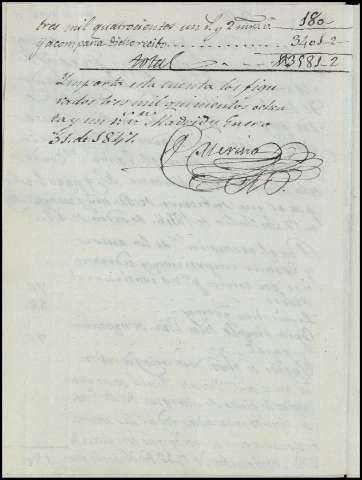 180
tres mil quatrocientos un r.s y 2 mrs.
q.e acompaña dicho recivo 3401-2
total 3581-2
Ymporta esta cuenta los figu
rados tres mil quinientos ochen
ta y un r.s Madrid y Enero
31. de 1847.